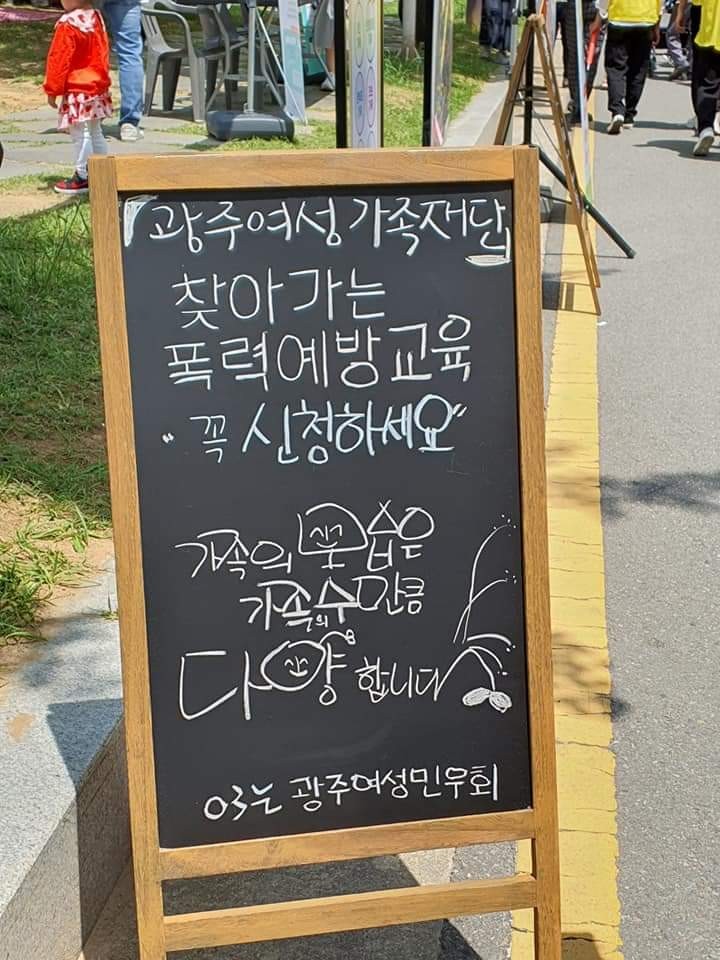 광주여성가족재단
찾아가는
폭력예방교육
"꼭 신청하세요"
가족의 모습은
가족의수만큼
다양합니다
03는 광주여성민우회